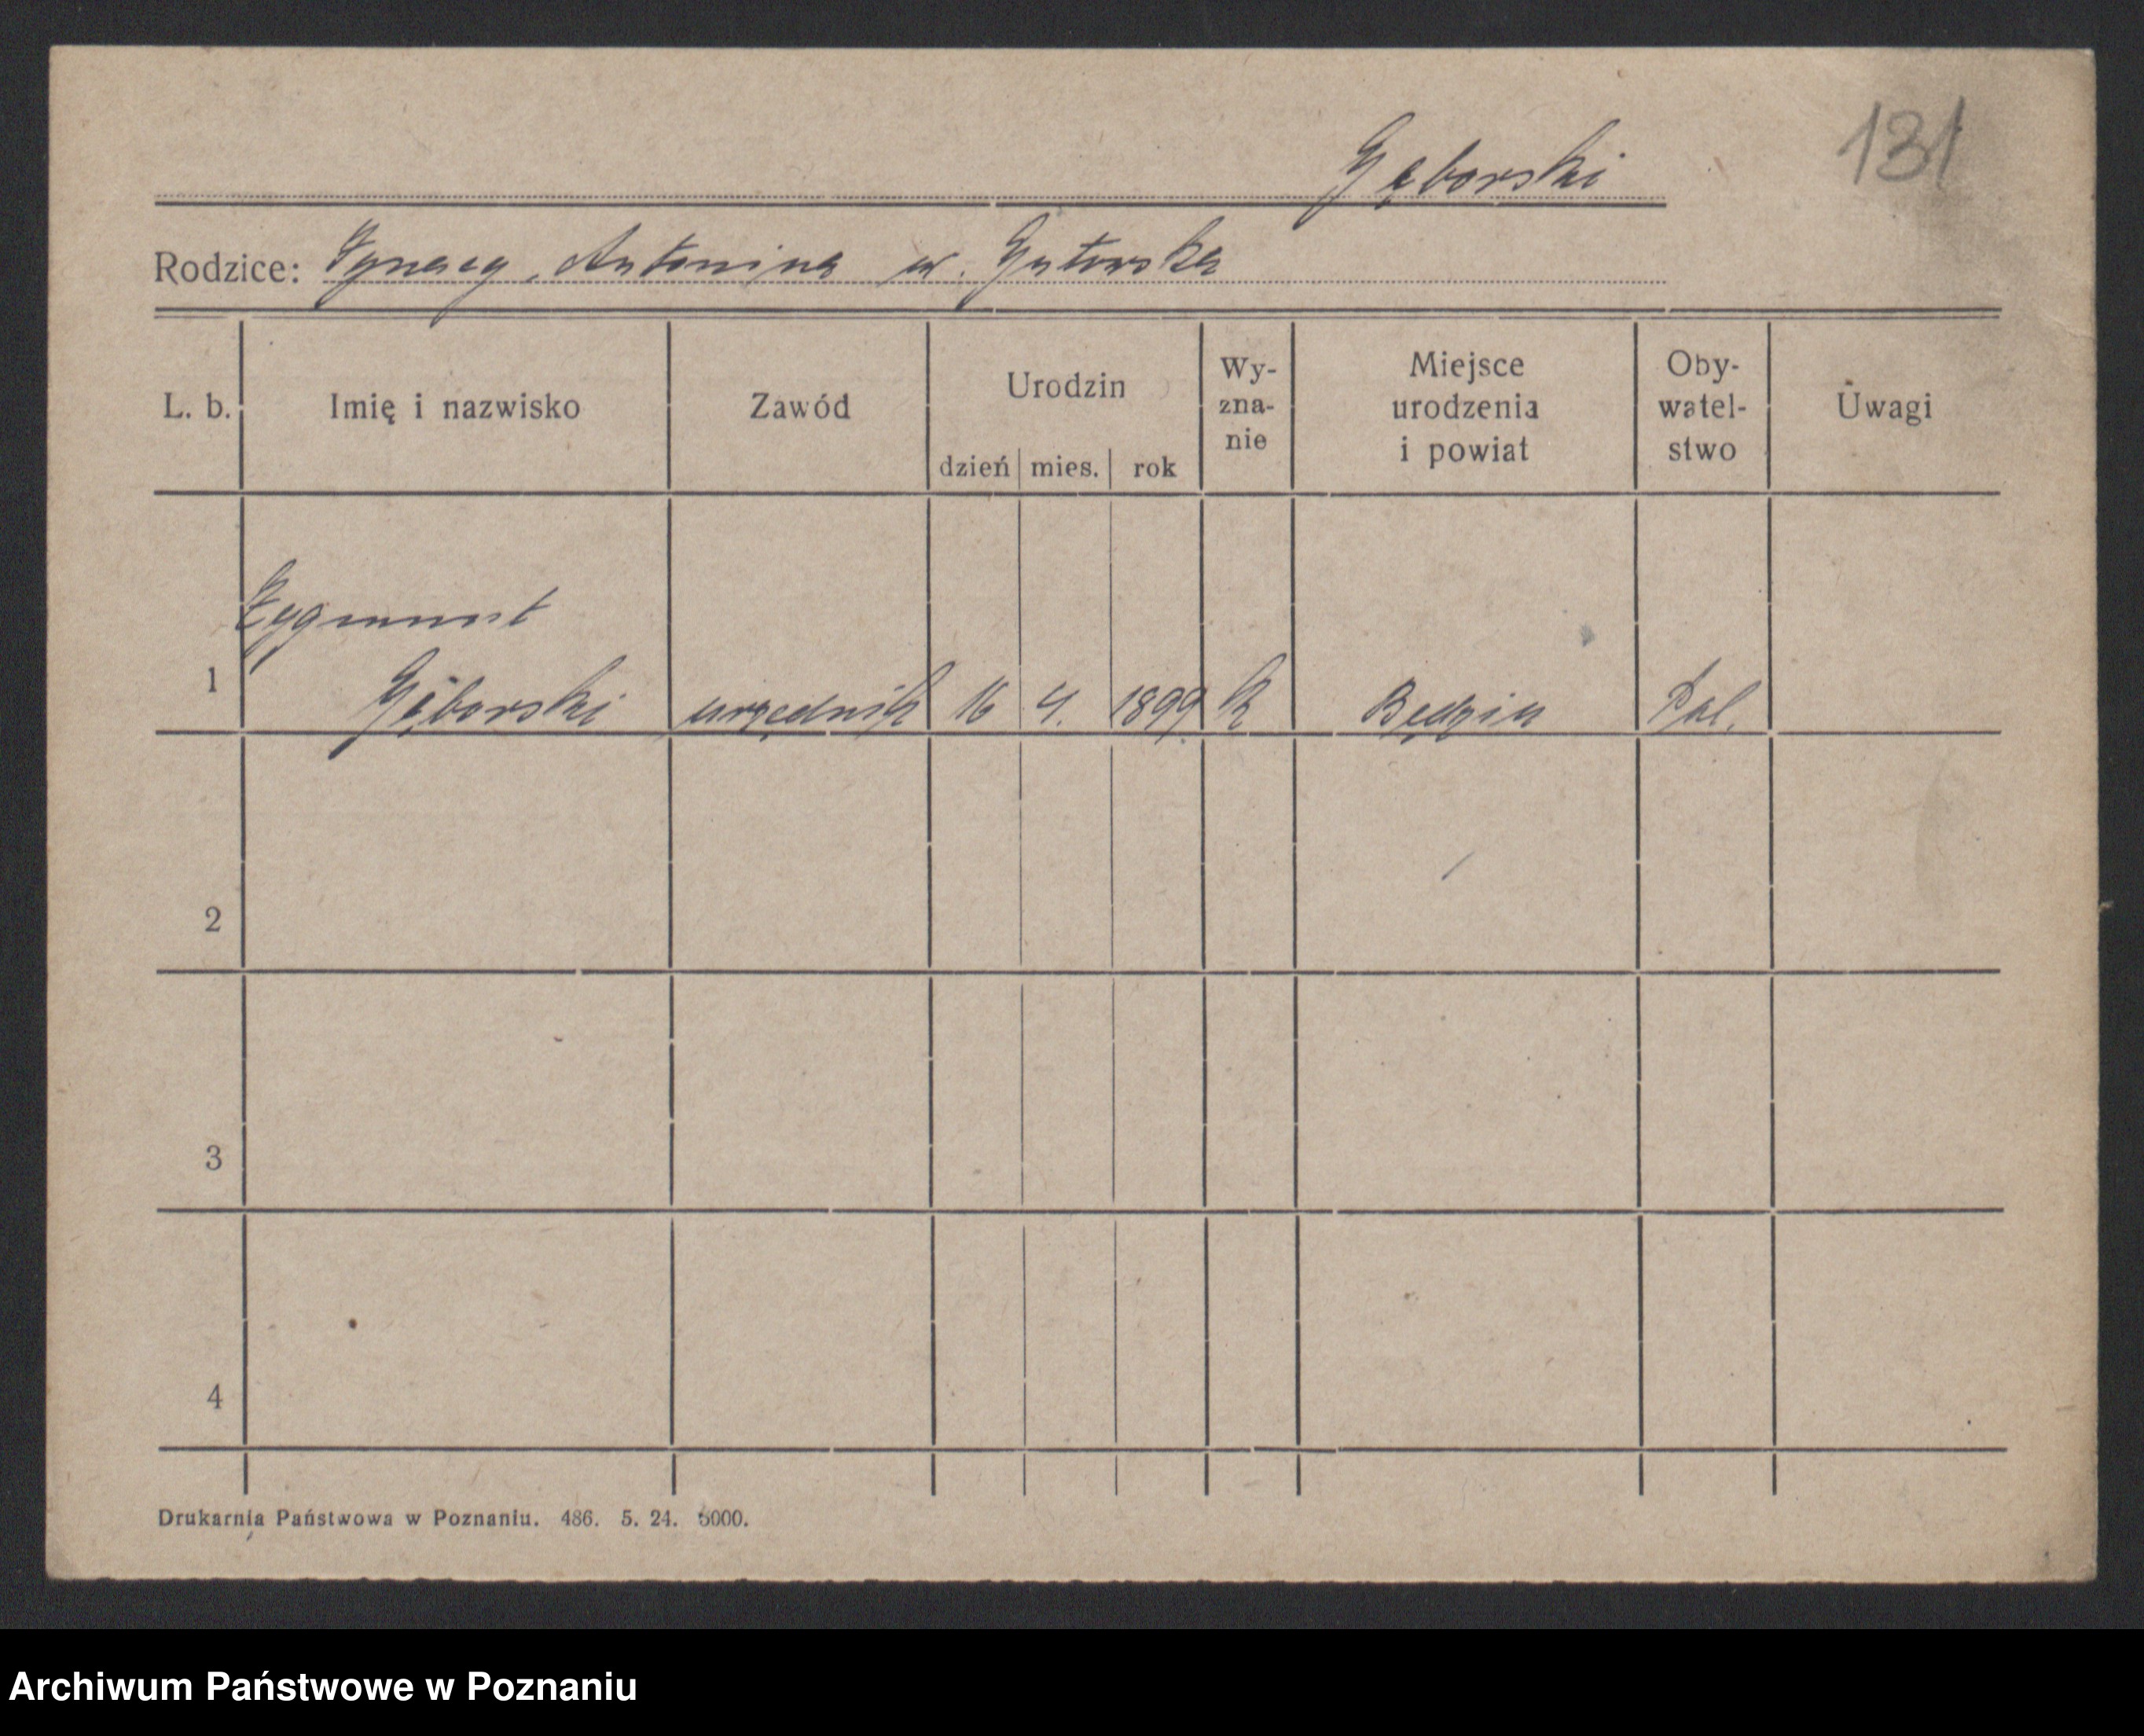 131
Gęborski
Rodzice: Ignacy, Antonina ur. Gutowska
L. b. Imię i nazwisko Zawód Urodzin dzień mies. rok Wy-zna-nie Miejsce urodzenia i powiat Oby-watel-stwo Uwagi
Zygmunt
1 Gęborski urzędnik 16 4. 1899 k Będzin Pol.
2
3
4
Drukarnia Państwowa w Poznaniu. 486. 5. 24. 5000.
Archiwum Państwowe w Poznaniu